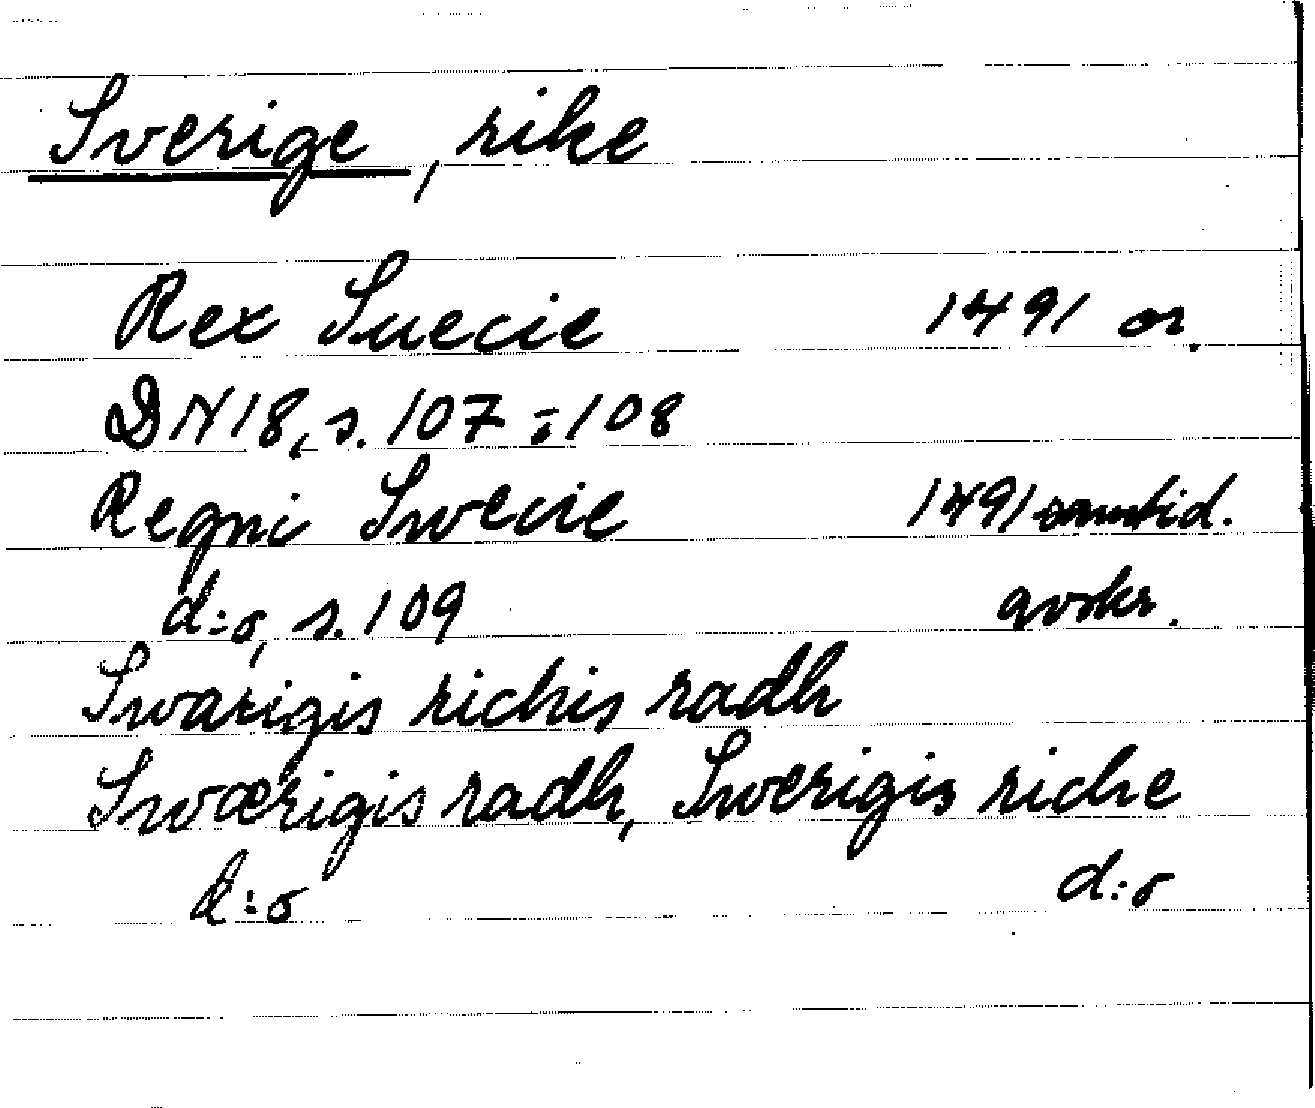 Sverige, rike
Rex Suecie 1491 or.
DN 18, s. 107-108
Regni Swecie 1491 samtid.
d:o, s. 109 avskr.
Swarigis richis radh
Swærigis radh, Swerigis riche
d:o d:o